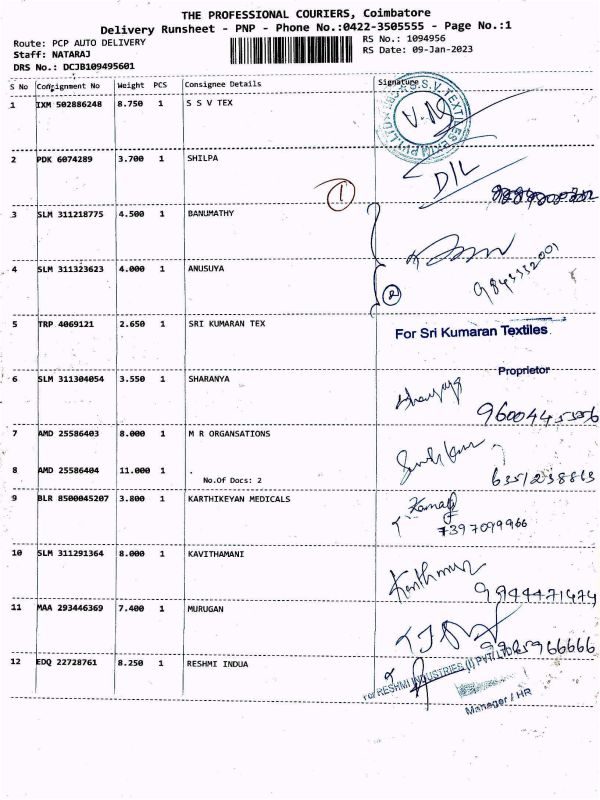 THE PROFESSIONAL COURIERS, Coimbatore
Delivery Runsheet - PNP - Phone No.:0422-3505555 - Page No.:1
Route: PCP AUTO DELIVERY
RS No.: 1094956
Staff: NATARAJ
RS Date: 09-Jan-2023
DRS No.: DCJB109495601
S No Consignment No Weight PCS Consignee Details Signature
1 IXM 502886248 8.750 1 S S V TEX
V. NS
2 PDK 6074289 3.700 1 SHILPA
D/L
1
3 SLM 311218775 4.500 1 BANUMATHY
4 SLM 311323623 4.000 1 ANUSUYA
9843332001
2
5 TRP 4069121 2.650 1 SRI KUMARAN TEX
For Sri Kumaran Textiles
Proprietor
6 SLM 311304054 3.550 1 SHARANYA
9600445556
7 AMD 25586403 8.000 1 M R ORGANSATIONS
8 AMD 25586404 11.000 1 .
No.Of Docs: 2
6351238863
9 BLR 8500045207 3.800 1 KARTHIKEYAN MEDICALS
7397099966
10 SLM 311291364 8.000 1 KAVITHAMANI
9944471474
11 MAA 293446369 7.400 1 MURUGAN
12 EDQ 22728761 8.250 1 RESHMI INDUA
For RESHMI INDUSTRIES (I) PVT LTD
Manager / HR